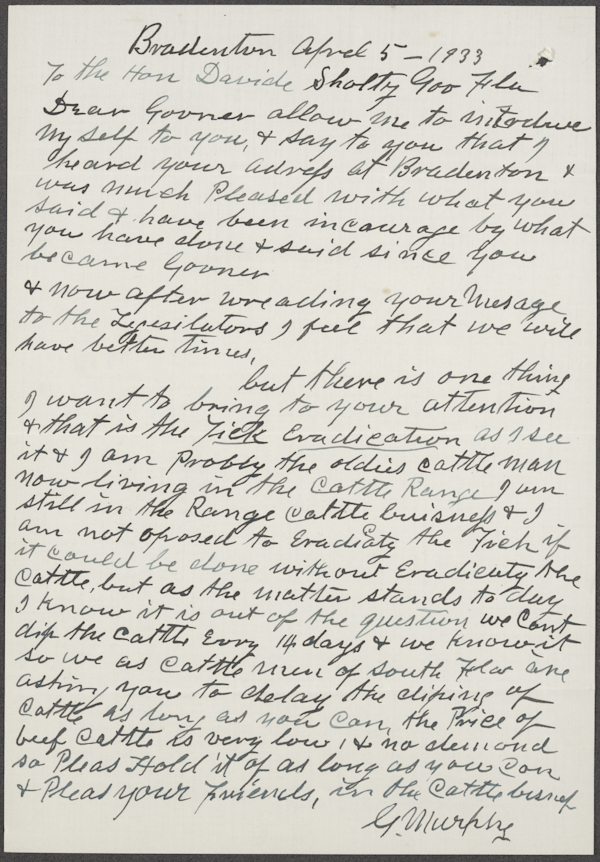 Bradenton Aprel 5 - 1933
To the Hon Davide Sholty Gov Fla
Dear Govner allow me to introdwce
My self to you, & say to you that I
heard your adress at Bradenton &
was much Pleased with what you
said & have been incourage by what
you have done & said since you
became Govner
& now after wreading your Mesage
to the Legisilators I feel that we will
have better times,
but there is one thing
I want to bring to your attention
& that is the Tick Eradication as I see
it & I am probly the oldies cattle man
now living in the Cattle Range I am
still in the Range cattle buisness, & I
am not oposed to Eradicaty the Tick if
it could be done without Eradicuty the
Cattle, but as the matter stands to day
I know it is out of the question we Cont
dip the cattle Evry 14 days & we know it
so we as Cattle men of South Flor are
asking you to delay the diping of
Cattle as long as you can, the Price of
beef Cattle is very low, & no demand
so Pleas Hold it of as long as you can
& Pleas your friends, in the Cattle bisnes
G. Murphy